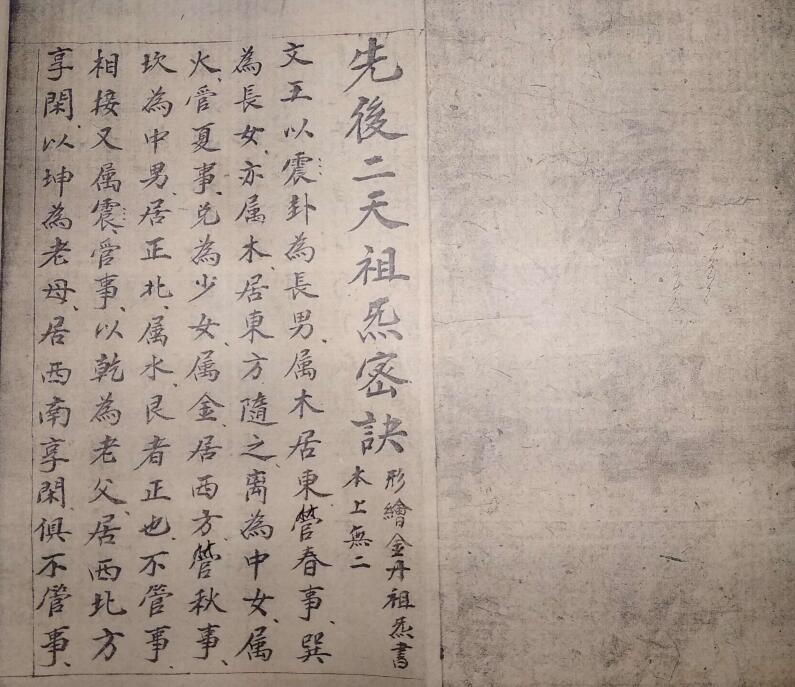 先後二天祖炁密訣
形繪金丹祖炁書
本上無二
文王以震卦為長男、属木居東、管春事、巽
為長女、亦属木、居東方隨之、离為中女、属
火、管夏事、兌為少女、属金、居西方、管秋事、
坎為中男、居正北、属水、艮者正也、不管事、
相接又属震、管事、以乾為老父、居西北方
享閑、以坤為老母、居西南享閑、俱不管事、